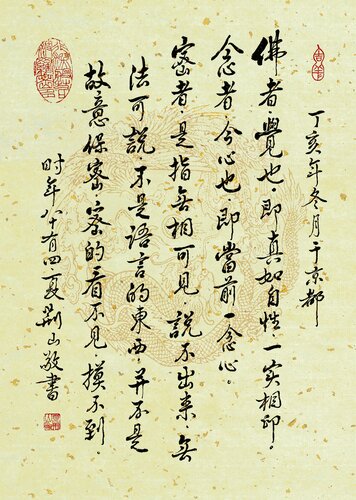 丁亥年冬月于京都
佛者·覺也·即真如自性·一实相印。
念者·今心也·即當前一念心。
密者·是指無相可見·說不出来·無
法可說·不是語言的東西·并不是
故意保密·密的看不見·摸不到·
时年八十有四夏荆山敬書